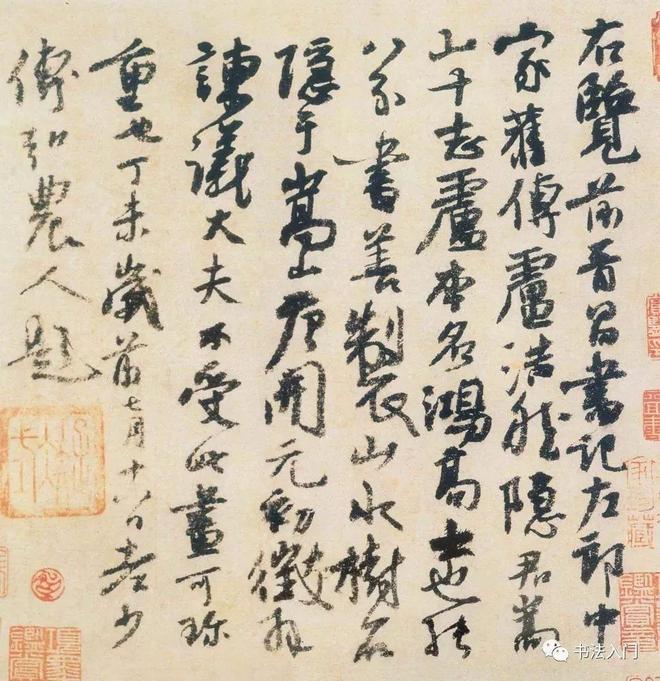 右覽前晉昌書記左郎中
家舊傳盧浩然隱居嵩
山十志盧本名鴻高士也能
八分書善製山水樹石
隱于嵩山唐開元初徵拜
諫議大夫不受此畫可珍
重也丁未歲前七月十八日老少
傅弘農人題
书法入门